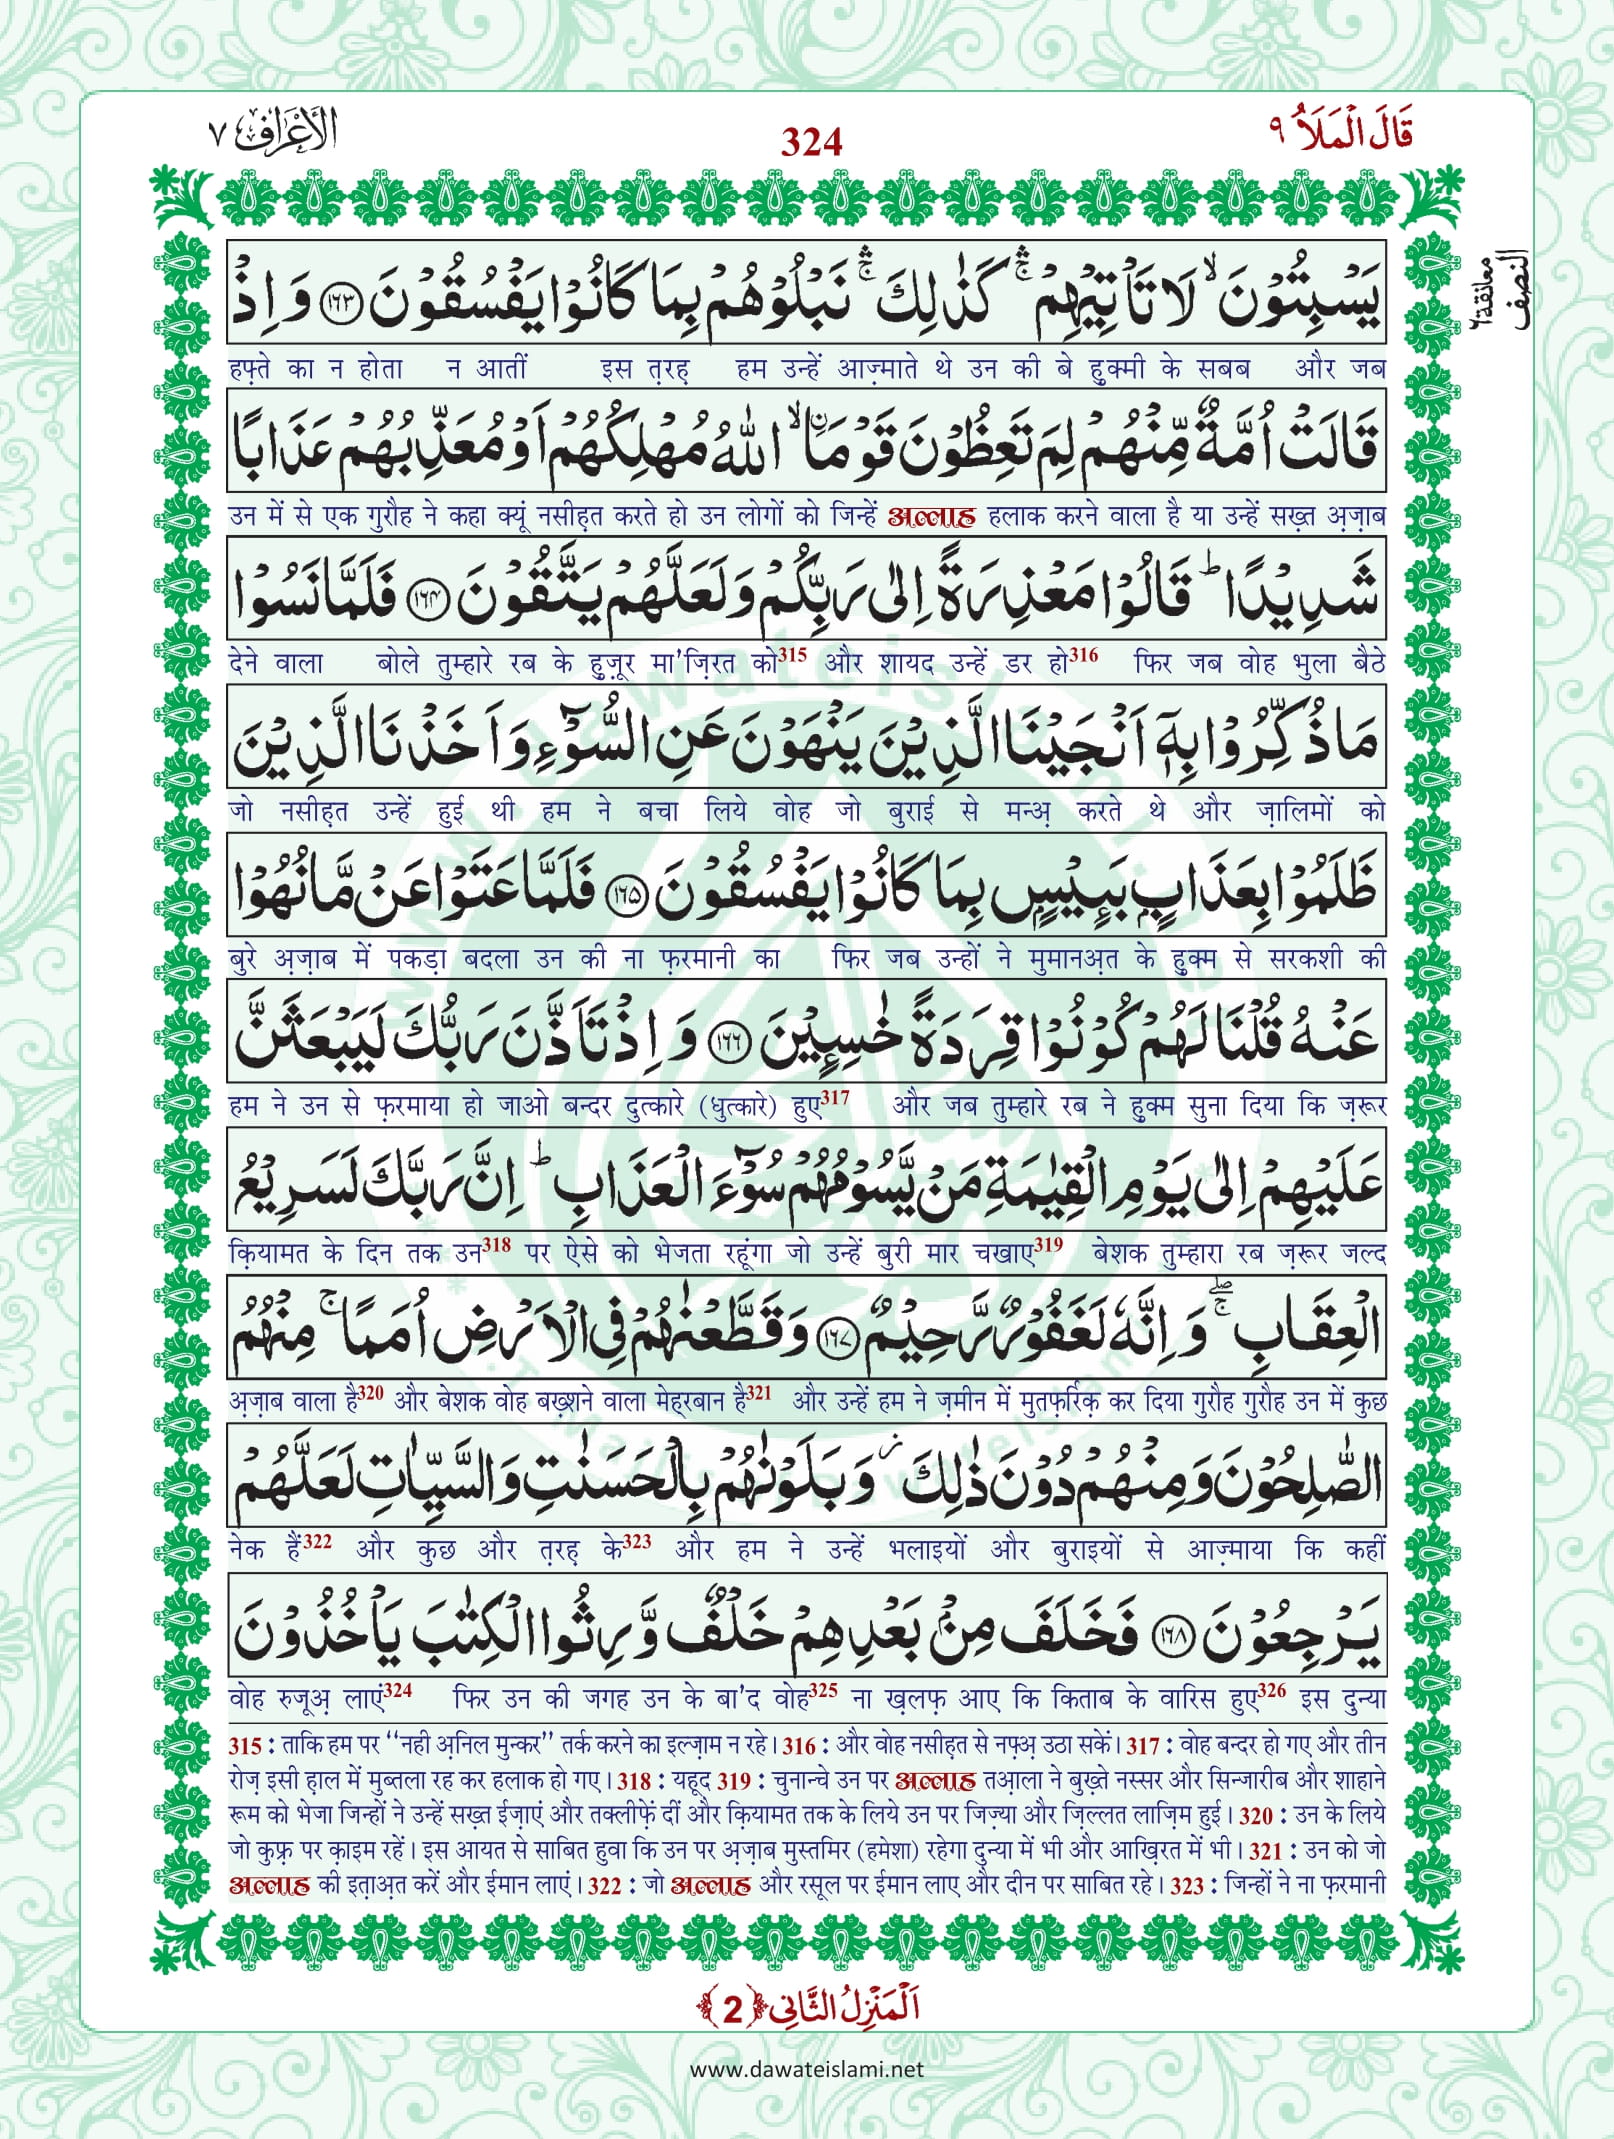 قَالَ الْمَلَاُ ٩
324
الْاَعْرَاف ٧
النصف
معانقة ٦
يَسْبِتُوْنَ ۙ لَا تَاْتِيْهِمْ ۛۚ كَذٰلِكَ ۛۚ نَبْلُوْهُمْ بِمَا كَانُوْا يَفْسُقُوْنَ ﴿۱۶۳﴾ وَ اِذْ
हफ़्ते का न होता न आतीं इस त़रह़ हम उन्हें आज़्माते थे उन की बे हुक्मी के सबब और जब
قَالَتْ اُمَّةٌ مِّنْهُمْ لِمَ تَعِظُوْنَ قَوْمَا ۙ ۨاللّٰهُ مُهْلِكُهُمْ اَوْ مُعَذِّبُهُمْ عَذَابًا
उन में से एक गुरौह ने कहा क्यूं नसीह़त करते हो उन लोगों को जिन्हें अल्लाह हलाक करने वाला है या उन्हें सख़्त अ़ज़ाब
شَدِيْدًا ؕ قَالُوْا مَعْذِرَةً اِلٰى رَبِّكُمْ وَ لَعَلَّهُمْ يَتَّقُوْنَ ﴿۱۶۴﴾ فَلَمَّا نَسُوْا
देने वाला बोले तुम्हारे रब के हुज़ूर मा'ज़िरत को315 और शायद उन्हें डर हो316 फिर जब वोह भुला बैठे
مَا ذُكِّرُوْا بِهٖۤ اَنْجَيْنَا الَّذِيْنَ يَنْهَوْنَ عَنِ السُّوْٓءِ وَ اَخَذْنَا الَّذِيْنَ
जो नसीह़त उन्हें हुई थी हम ने बचा लिये वोह जो बुराई से मन्अ़ करते थे और ज़ालिमों को
ظَلَمُوْا بِعَذَابٍۭ بَـِٕيْسٍۭ بِمَا كَانُوْا يَفْسُقُوْنَ ﴿۱۶۵﴾ فَلَمَّا عَتَوْا عَنْ مَّا نُهُوْا
बुरे अ़ज़ाब में पकड़ा बदला उन की ना फ़रमानी का फिर जब उन्हों ने मुमानअ़त के हुक्म से सरकशी की
عَنْهُ قُلْنَا لَهُمْ كُوْنُوْا قِرَدَةً خٰسِـِٕيْنَ ﴿۱۶۶﴾ وَ اِذْ تَاَذَّنَ رَبُّكَ لَيَبْعَثَنَّ
हम ने उन से फ़रमाया हो जाओ बन्दर दुत्कारे (धुत्कारे) हुए317 और जब तुम्हारे रब ने हुक्म सुना दिया कि ज़रूर
عَلَيْهِمْ اِلٰى يَوْمِ الْقِيٰمَةِ مَنْ يَّسُوْمُهُمْ سُوْٓءَ الْعَذَابِ ؕ اِنَّ رَبَّكَ لَسَرِيْعُ
क़ियामत के दिन तक उन318 पर ऐसे को भेजता रहूंगा जो उन्हें बुरी मार चखाए319 बेशक तुम्हारा रब ज़रूर जल्द
الْعِقَابِ ۚۖ وَ اِنَّهٗ لَغَفُوْرٌ رَّحِيْمٌ ﴿۱۶۷﴾ وَ قَطَّعْنٰهُمْ فِی الْاَرْضِ اُمَمًا ۚ مِنْهُمُ
अ़ज़ाब वाला है320 और बेशक वोह बख़्शने वाला मेह्रबान है321 और उन्हें हम ने ज़मीन में मुतफ़र्रिक़ कर दिया गुरौह गुरौह उन में कुछ
الصّٰلِحُوْنَ وَ مِنْهُمْ دُوْنَ ذٰلِكَ ؗ وَ بَلَوْنٰهُمْ بِالْحَسَنٰتِ وَ السَّيِّاٰتِ لَعَلَّهُمْ
नेक हैं322 और कुछ और त़रह़ के323 और हम ने उन्हें भलाइयों और बुराइयों से आज़्माया कि कहीं
يَرْجِعُوْنَ ﴿۱۶۸﴾ فَخَلَفَ مِنْۢ بَعْدِهِمْ خَلْفٌ وَّرِثُوا الْكِتٰبَ يَاْخُذُوْنَ
वोह रुजूअ़ लाएं324 फिर उन की जगह उन के बा'द वोह325 ना ख़लफ़ आए कि किताब के वारिस हुए326 इस दुन्या
315 : ताकि हम पर ‘‘नही अ़निल मुन्कर’’ तर्क करने का इल्ज़ाम न रहे। 316 : और वोह नसीह़त से नफ़्अ़ उठा सकें। 317 : वोह बन्दर हो गए और तीन
रोज़ इसी ह़ाल में मुब्तला रह कर हलाक हो गए। 318 : यहूद 319 : चुनान्चे उन पर अल्लाह तआ़ला ने बुख़्ते नस्सर और सिन्जारीब और शाहाने
रूम को भेजा जिन्हों ने उन्हें सख़्त ईज़ाएं और तक्लीफ़ें दीं और क़ियामत तक के लिये उन पर जिज़्या और ज़िल्लत लाज़िम हुई। 320 : उन के लिये
जो कुफ़्र पर क़ाइम रहें। इस आयत से साबित हुवा कि उन पर अ़ज़ाब मुस्तमिर (हमेशा) रहेगा दुन्या में भी और आख़िरत में भी। 321 : उन को जो
अल्लाह की इत़ाअ़त करें और ईमान लाएं। 322 : जो अल्लाह और रसूल पर ईमान लाए और दीन पर साबित रहे। 323 : जिन्हों ने ना फ़रमानी
اَلْمَنْزِلُ الثَّانِی ﴿2﴾
www.dawateislami.net